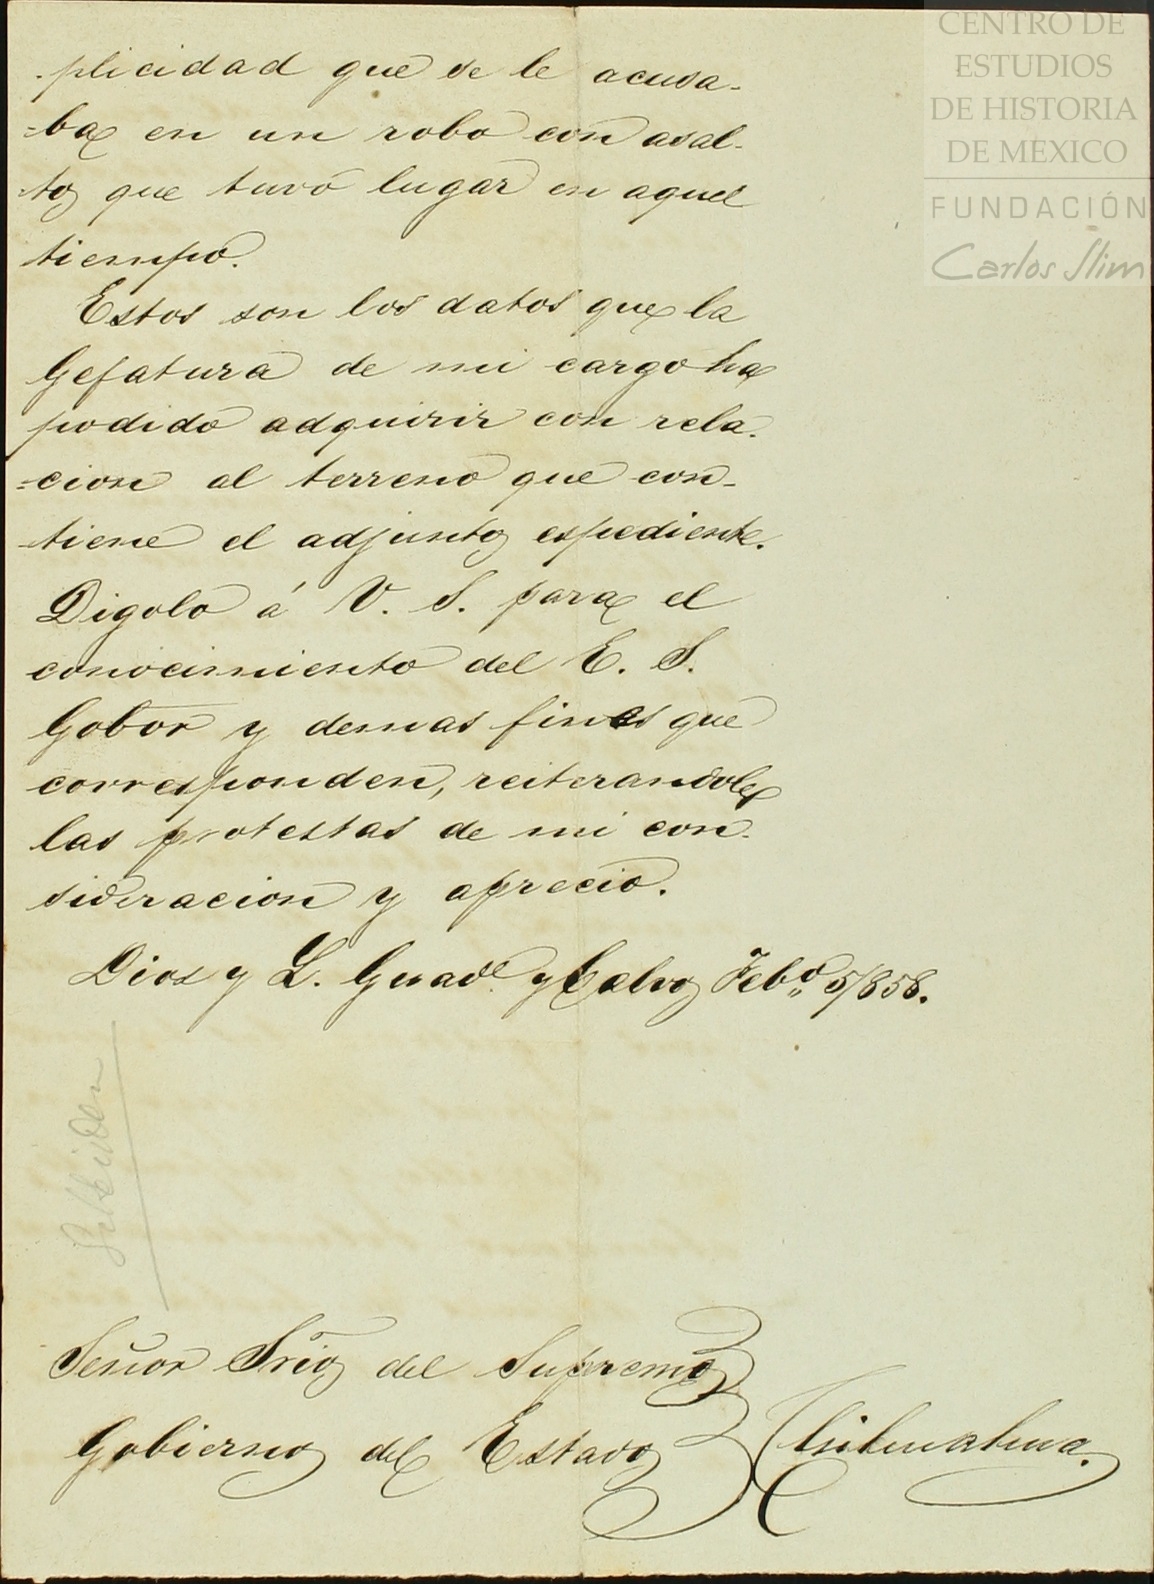 -plicidad que se le acusa-
=ba en un robo con asal-
-to que tuvó lugar en aquel
tiempo.
Estos son los datos que la
Gefatura de mi cargo ha
podido adquirir con rela-
=cion al terreno que con-
-tiene el adjunto espediente.
Digolo á V. S. para el
conocimiento del E. S.
Gobor y demas fines que
corresponden, reiterandole
las protestas de mi con-
sideracion y aprecio.
Dios y L. Guade. y Calvo Febo. 5/858.
Señor Srio del Supremo
Gobierno del Estado
Chihuahua.
CENTRO DE
ESTUDIOS
DE HISTORIA
DE MEXICO
FUNDACIÓN
Carlos Slim